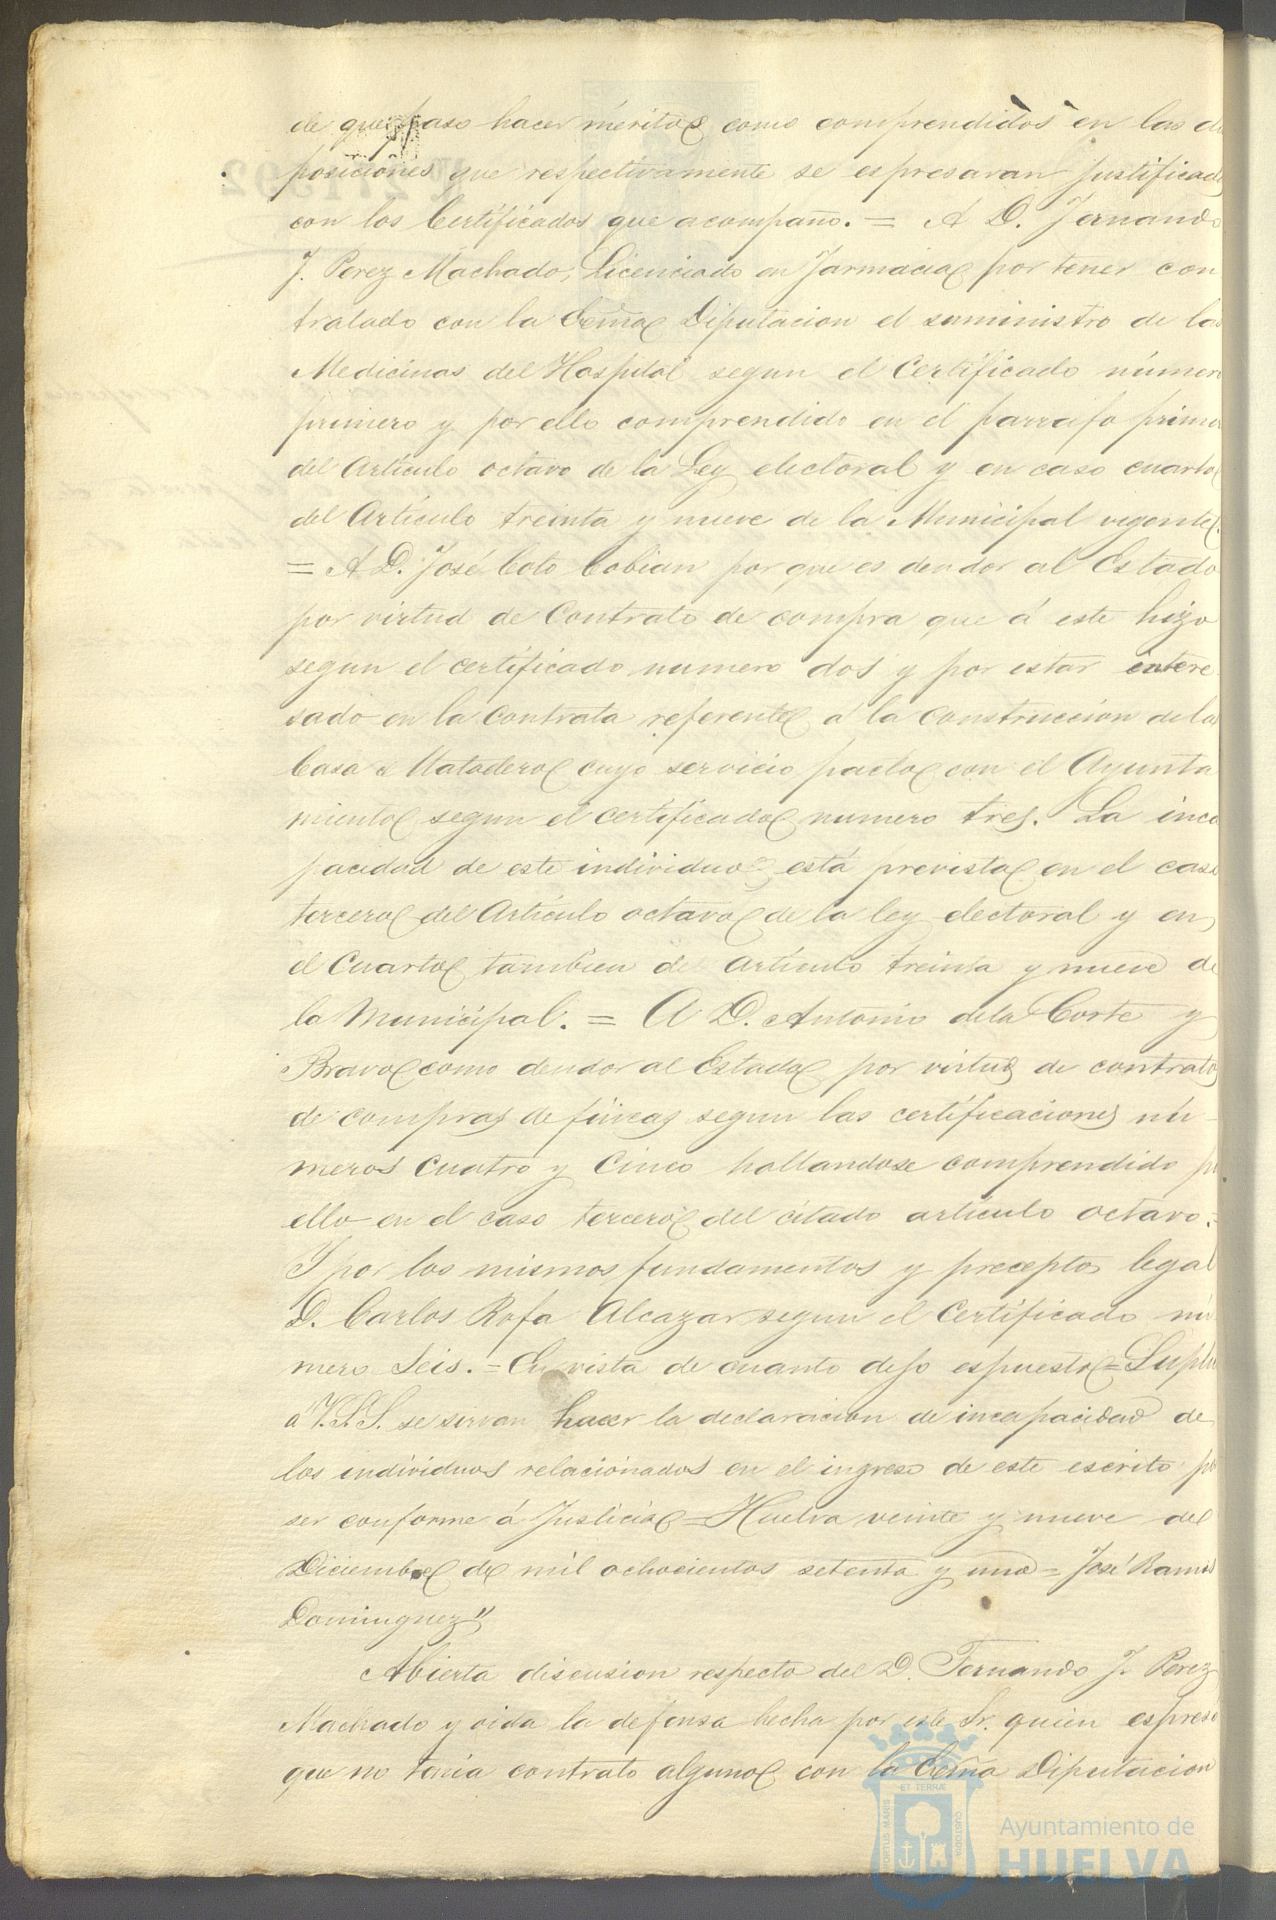 de que paso hacer méritos como comprendidos en las di
posiciones que respectivamente se espresaran justificad
con los Certificados que acompaño. = A D. Fernando
J. Perez Machado, Licenciado en Farmacia por tener con
tratado con la Ecma Diputacion el suministro de las
Medicinas del Hospital segun el Certificado número
primero y por ello comprendido en el parrafo primer
del Artículo octavo de la Ley electoral y en caso cuarto
del Artículo treinta y nueve de la Municipal vigente.
= A D. José Coto Cobian por que es deudor al Estado
por virtud de Contrato de compra que á este hizo
segun el certificado numero dos y por estar intere
sado en la contrata referente á la construccion de la
Casa Matadero cuyo servicio pactó con el Ayunta
miento segun el certificado numero tres. La inca
pacidad de este individuo está prevista en el caso
tercero del Artículo octavo de la ley electoral y en
el Cuarto tambien de artículo treinta y nueve de
la Municipal. = A D. Antonio de la Corte y
Bravo como deudor al Estado por virtud de contrato
de compras de fincas segun las certificaciones nú-
meros Cuatro y Cinco hallandose comprendido p
ello en el caso tercero del citado artículo octavo.=
Y por los mismos fundamentos y precepto legal
D. Carlos Rofa Alcazar segun el Certificado nú
mero Seis. = En vista de cuanto dejo espuesto = Suplic
a V.S.S. se sirvan hacer la declaracion de incapacidad de
los individuos relacionados en el ingreso de este escrito p
ser conforme á Justicia = Huelva veinte y nueve de
Diciembre de mil ochocientos setenta y uno = José Ramos
Dominguez"
Abierta discusion respecto del D. Fernando J. Perez
Machado y oida la defensa hecha por este Sr. quien espresó
que no tenia contrato alguno con la Ecma Diputacion
ET TERRÆ
PORTUS MARIS
CUSTODIA
Ayuntamiento de
HUELVA